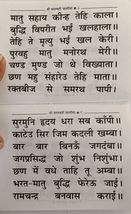 श्री सरस्वती चालीसा
मातु सहाय कीन्ह तेहि काला।
बुद्धि विपरीत भई खलहाला॥
तेहि ते मृत्यु भई खल केरी।
पुरवहु मातु मनोरथ मेरी॥
चण्ड मुण्ड जो थे विख्याता।
छण महु संहारेउ तेहि माता॥
रक्तबीज से समरथ पापी।
श्री सरस्वती चालीसा
सुरमुनि हृदय धरा सब काँपी॥
काटेउ सिर जिम कदली खम्बा।
बार बार बिनऊँ जगदंबा॥
जगप्रसिद्ध जो शुंभ निशुंभा।
छण में बधे ताहि तू अम्बा॥
भरत-मातु बुद्धि फेरेऊ जाई।
रामचन्द्र बनवास कराई॥